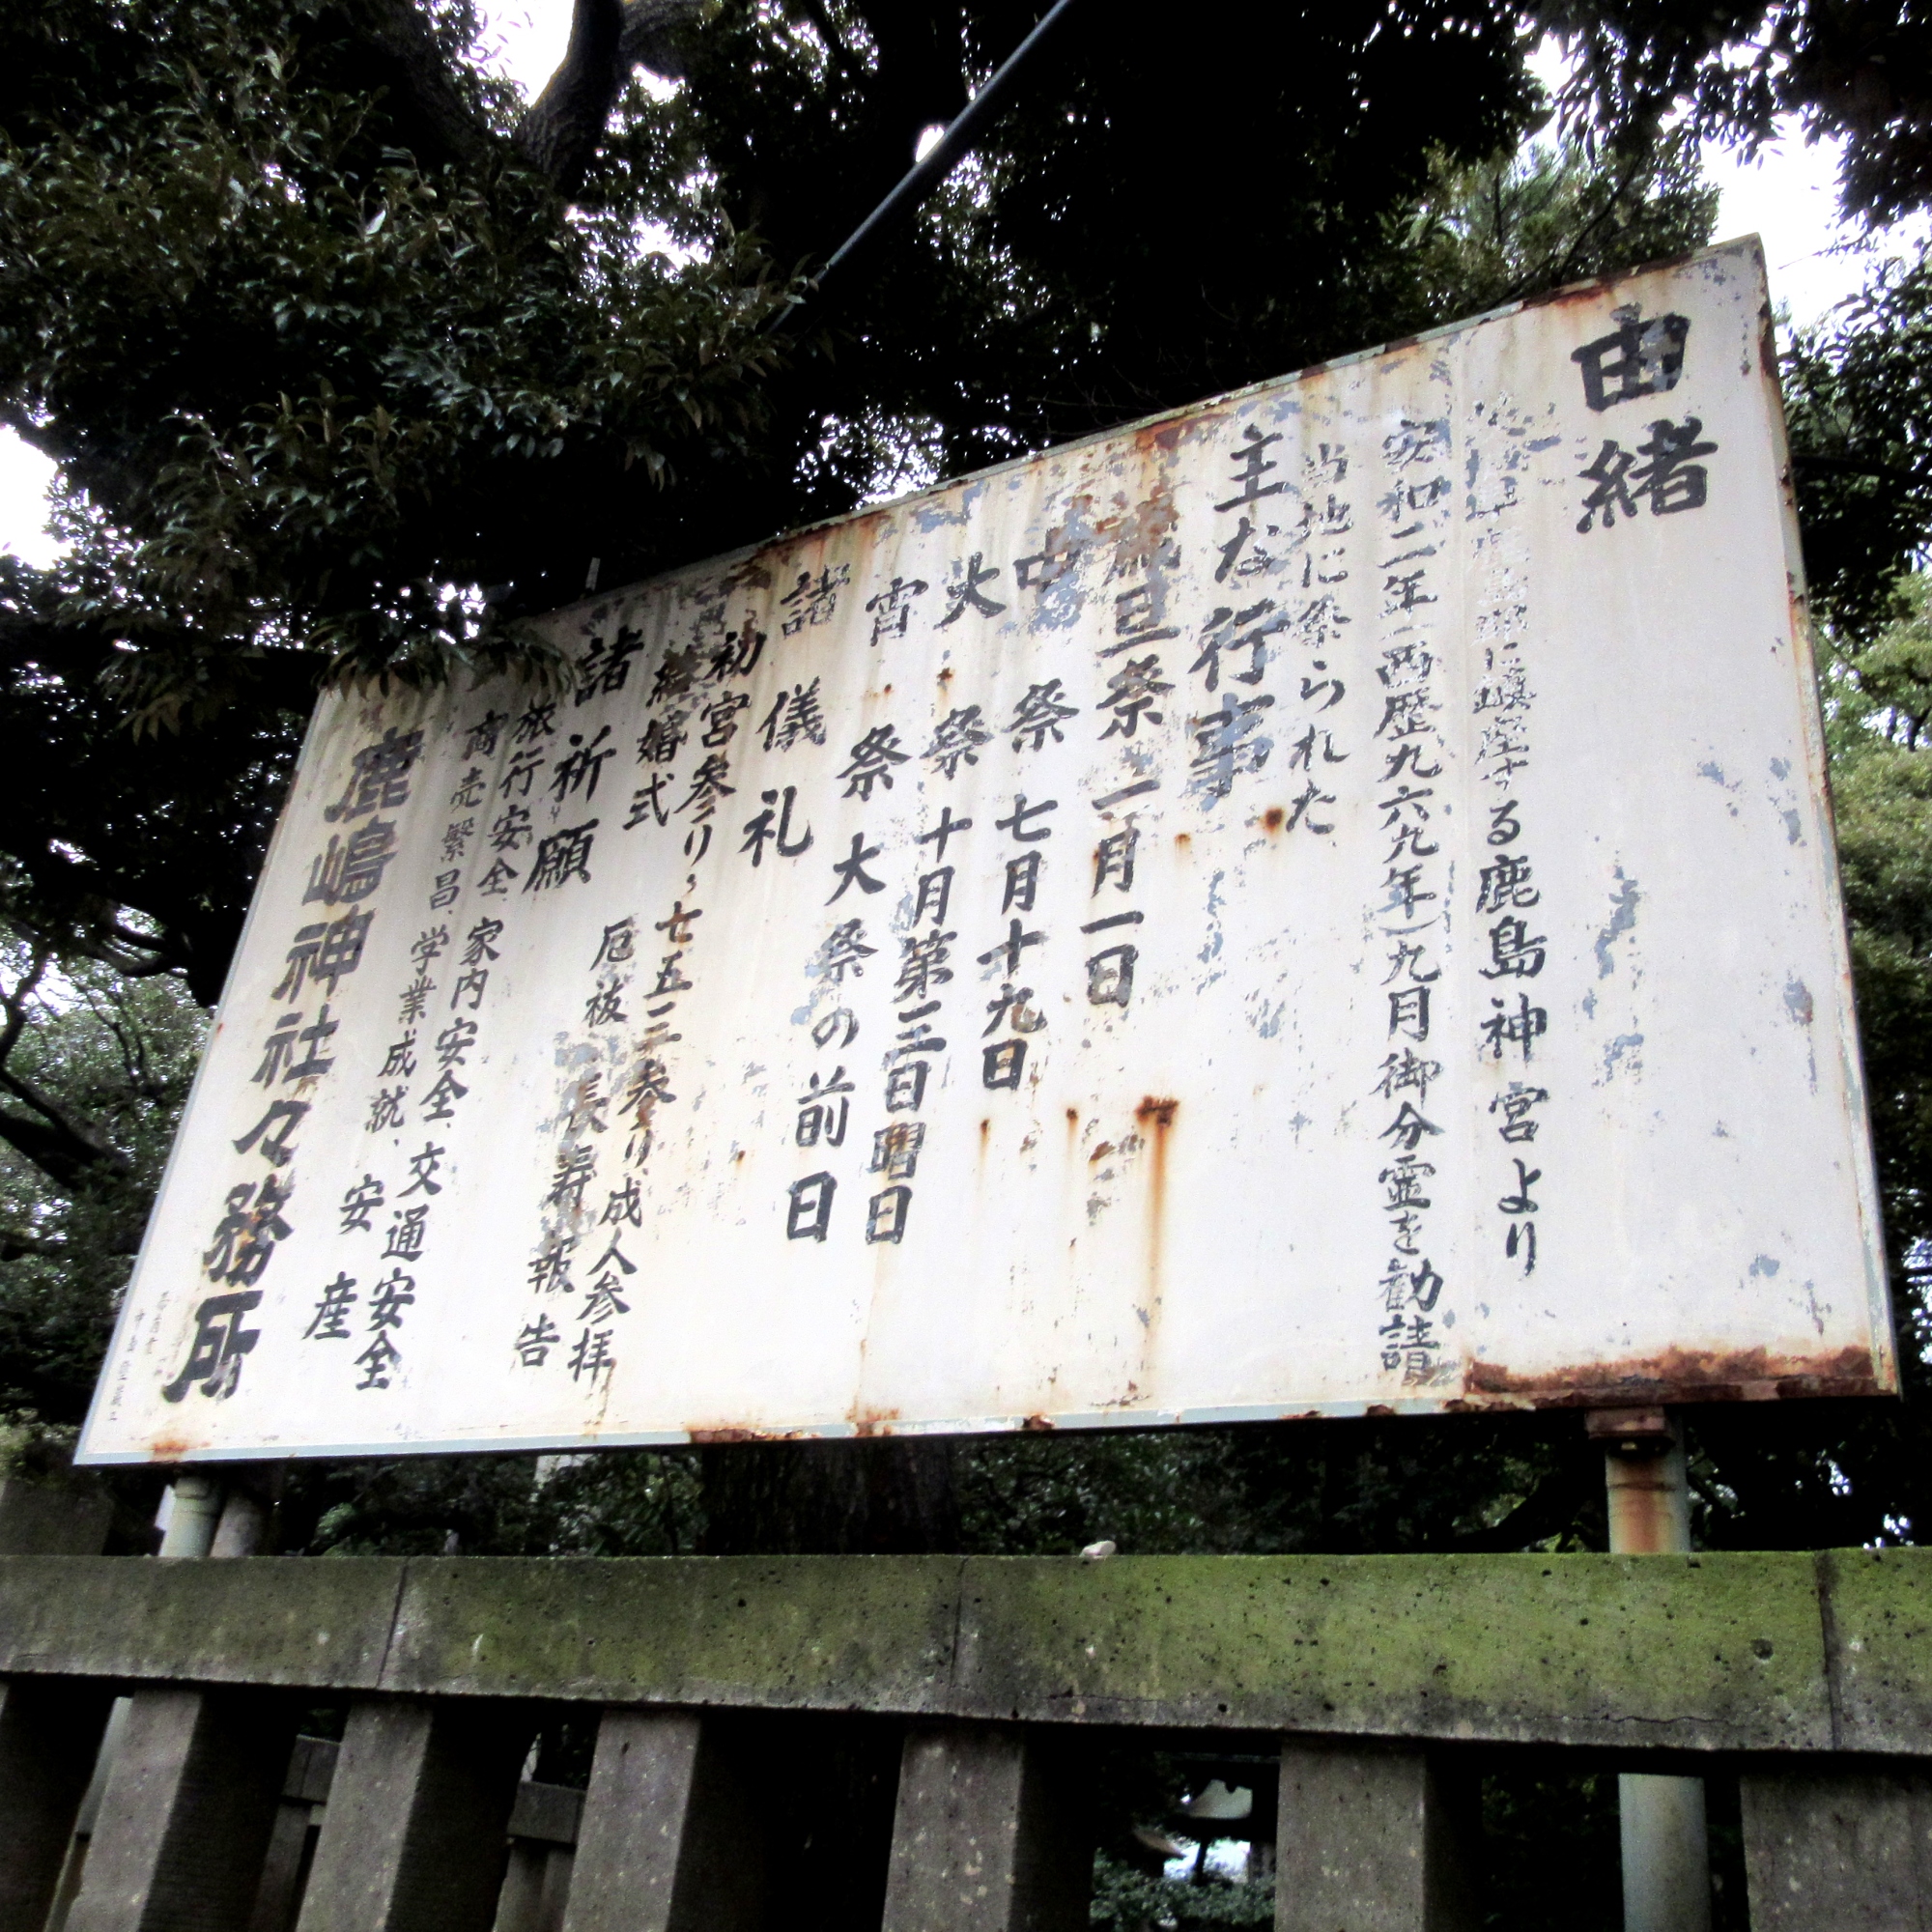 由緒
鹿島郡に鎮座する鹿島神宮より
安和二年(西歴九六九年)九月御分霊を勧請
当地に祭られた
主な行事
歳旦祭 一月一日
中祭 七月十九日
大祭 十月第三日曜日
宵祭 大祭の前日
諸儀礼
初宮参り、七五三参り、成人参拝
結婚式 厄祓 長寿報告
諸祈願
旅行安全、家内安全、交通安全
商売繁昌、学業成就、安産
鹿嶋神社々務所